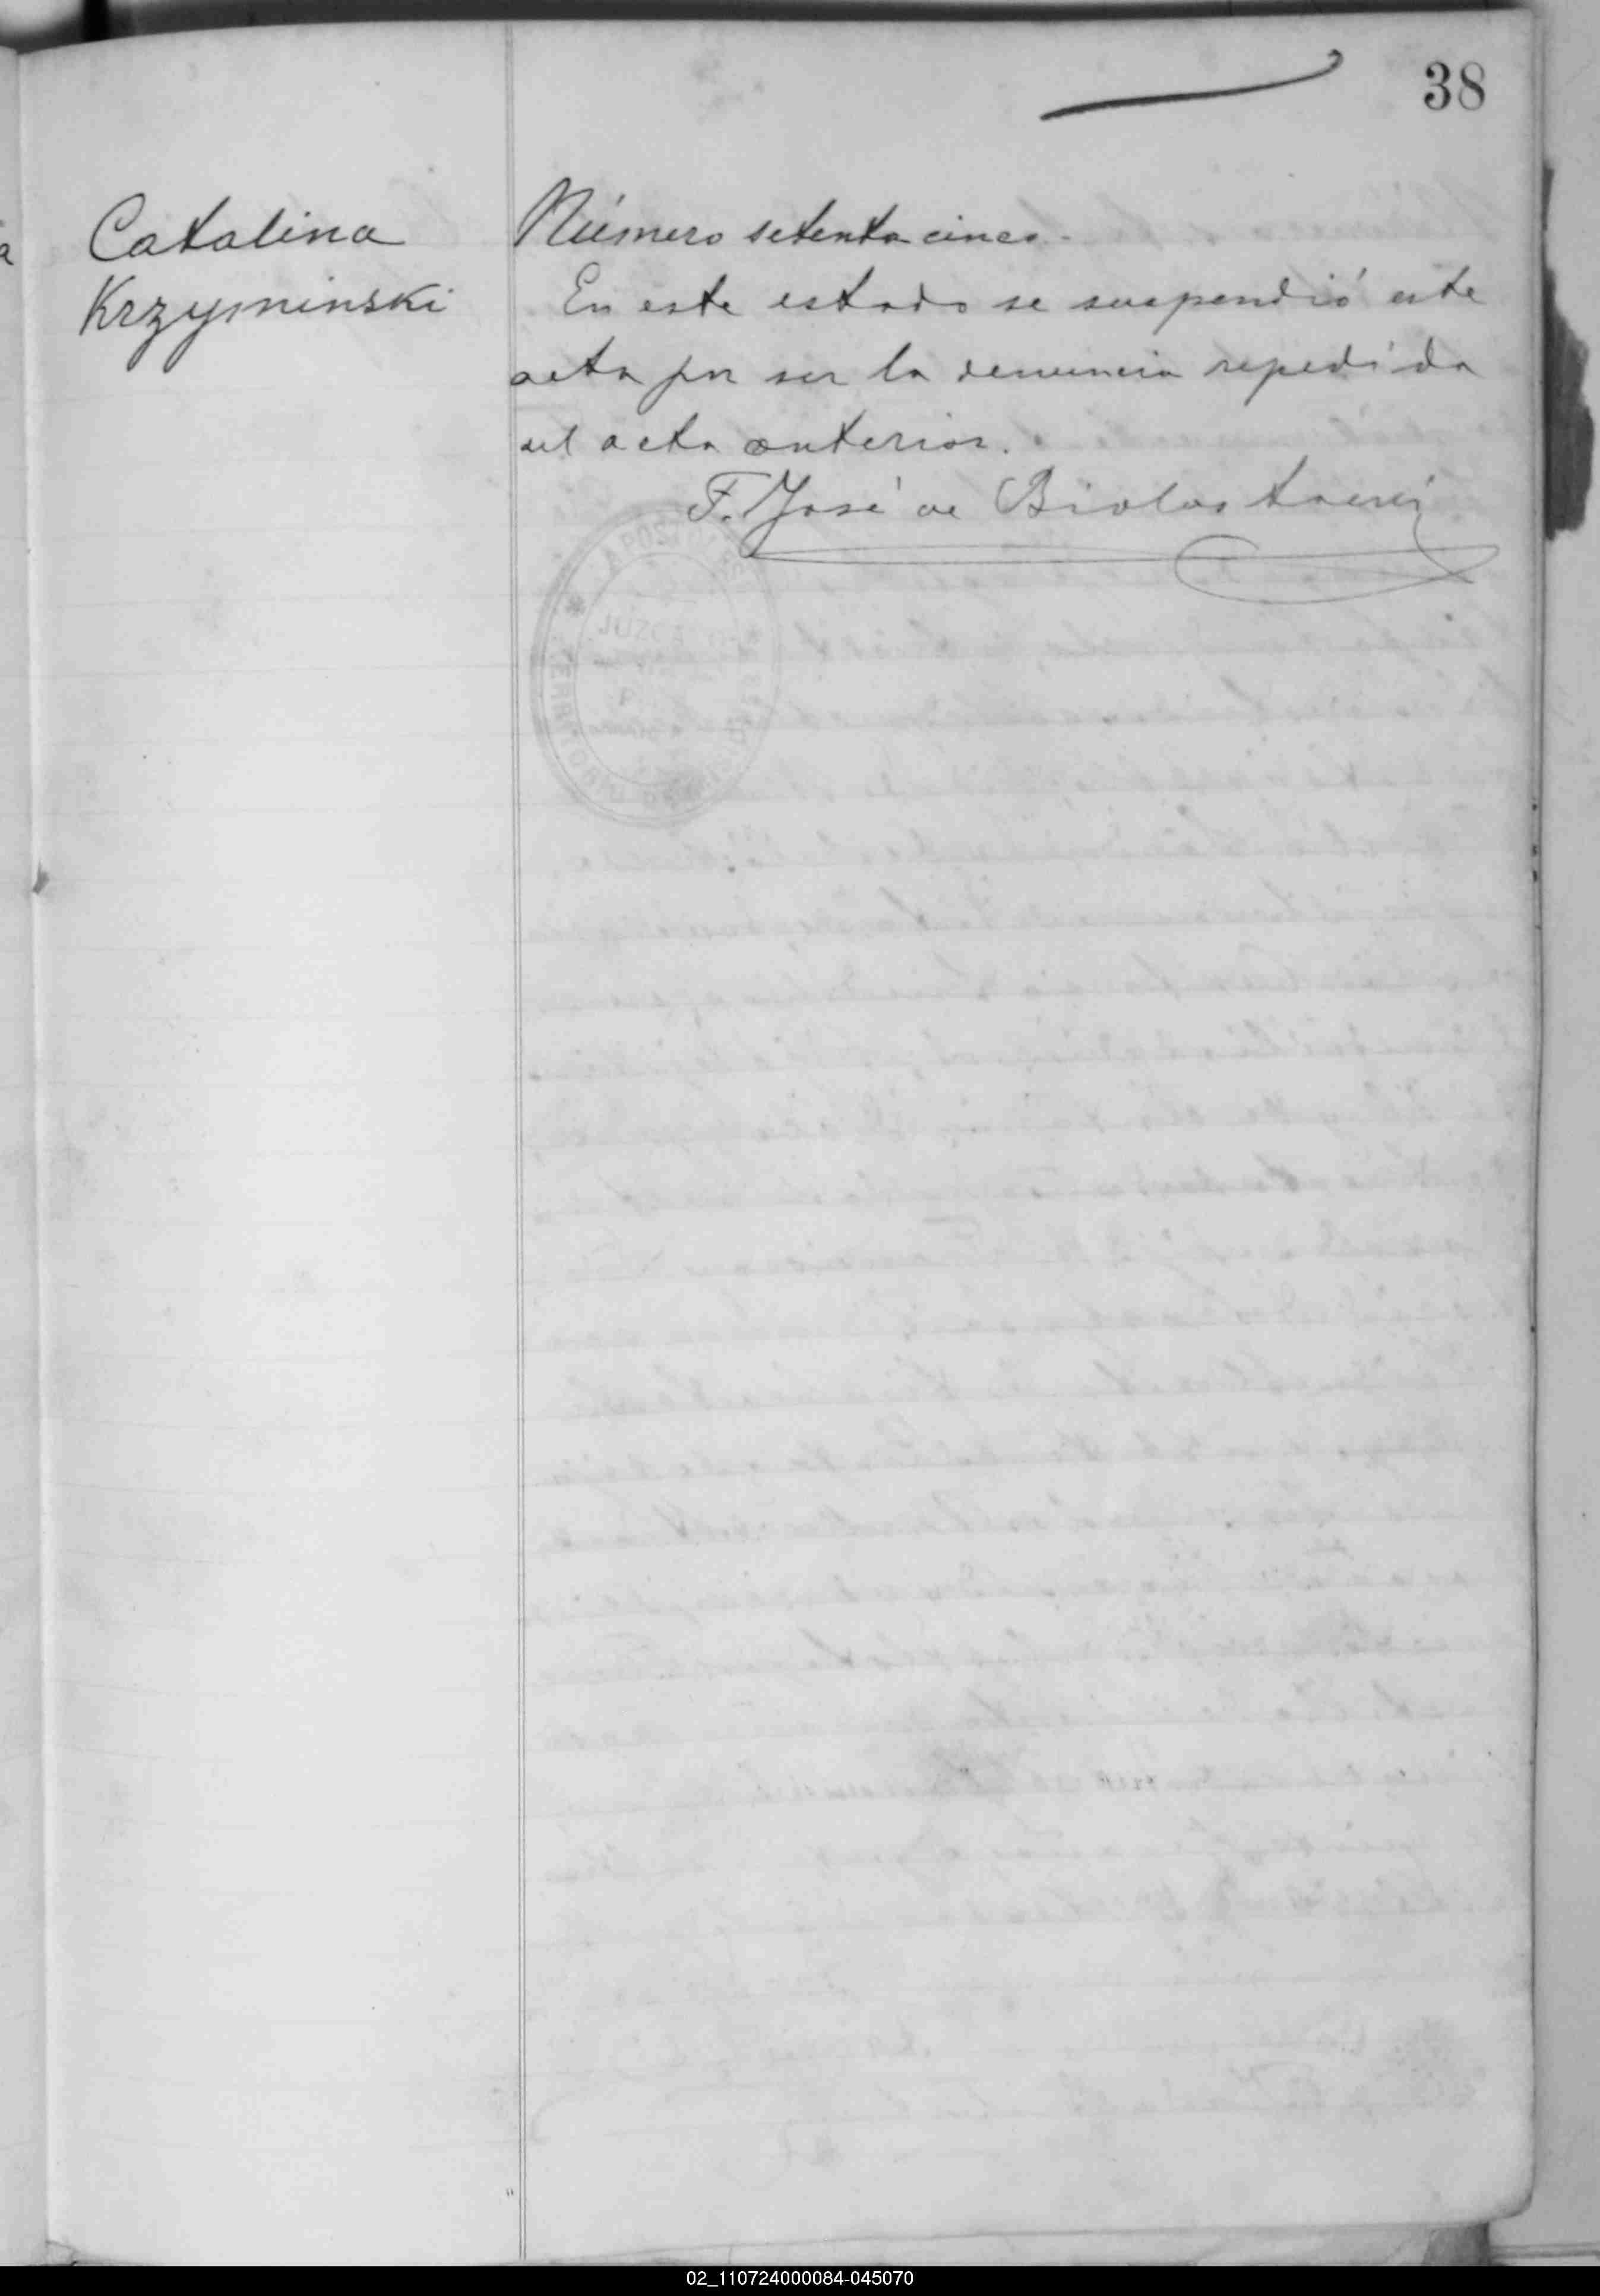 38
Catalina
Krzyminski
Número setenta cinco.
En este estado se suspendió este
acta por ser la denuncia repedida
del acta anterior.
F. José de
APO
JUZGA
TERRITORIO
02_110724000084-045070